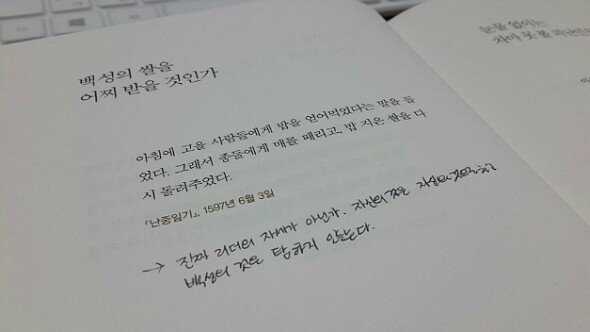 백성의 쌀을
어찌 받을 것인가
아침에 고을 사람들에게 밥을 얻어먹었다는 말을 들
었다. 그래서 종들에게 매를 때리고, 밥 지은 쌀을 다
시 돌려주었다.
『난중일기』, 1597년 6월 3일
→ 진짜 리더의 자세가 아닌가. 자신의 것은 자신의 것으로
백성의 것은 탐하지 않는다.
눈물 없이는
차마 못 볼